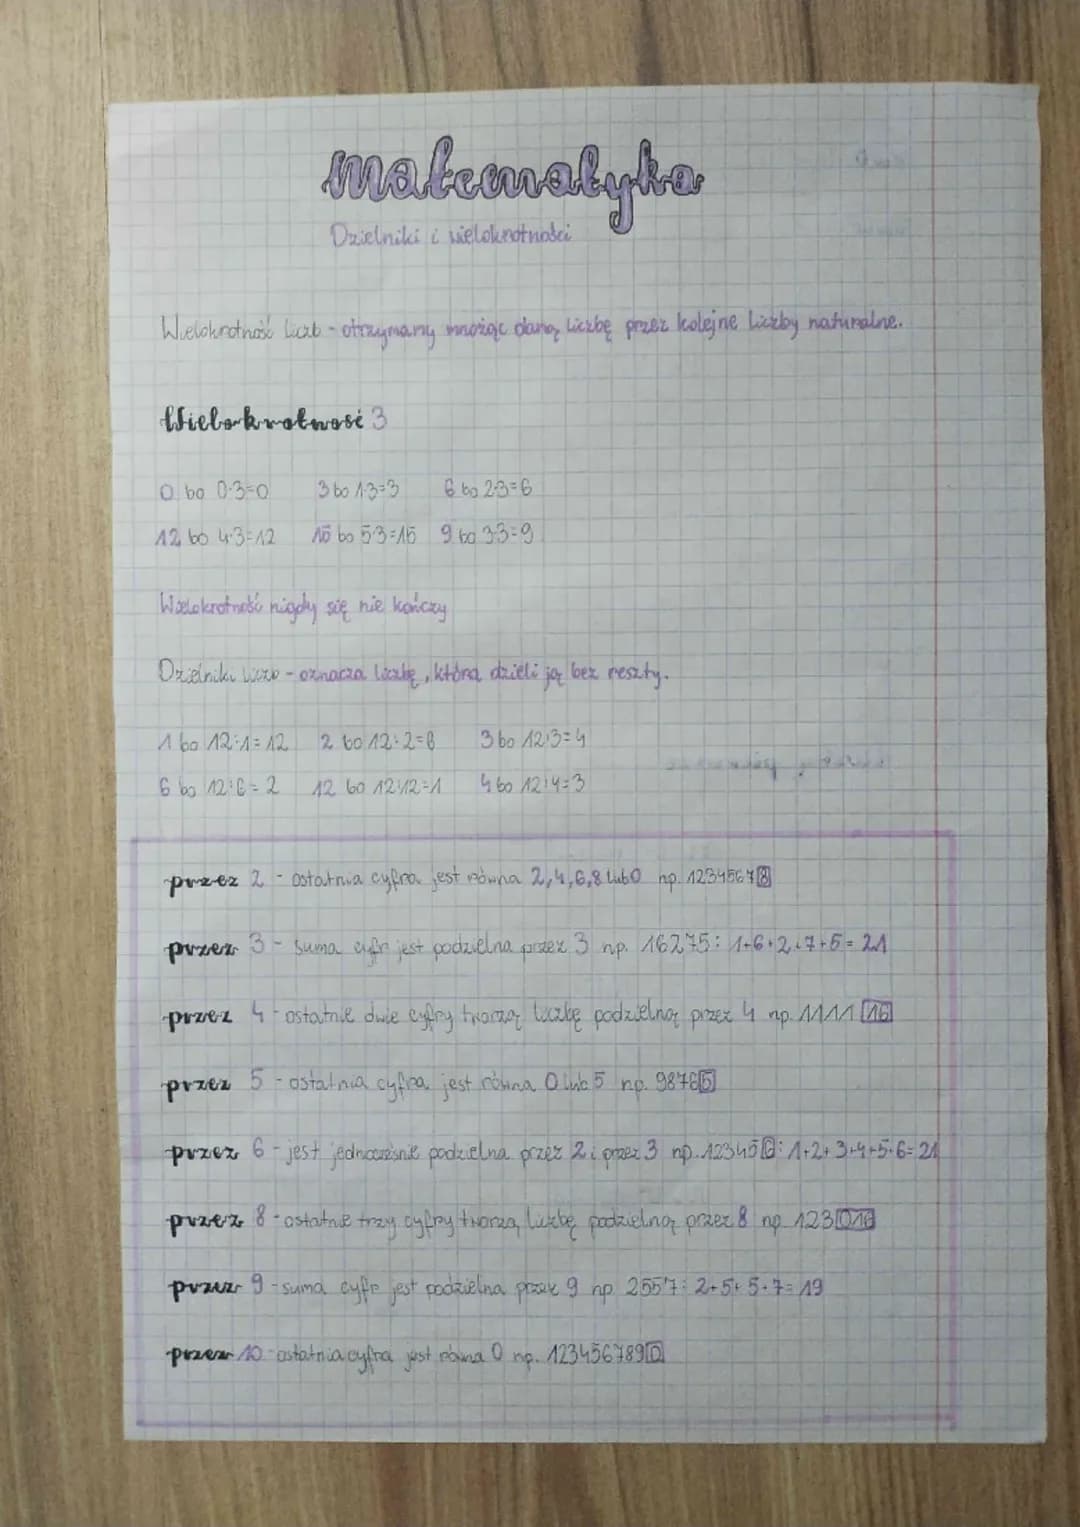 matematyka
Dzielniki i wielokrotności
Wielokrotność liczb - otrzymany mnożąc daną liczbę przez kolejne liczby naturalne.
Wielokrotność 3
0 bo 0·3=0 3 bo 1·3=3 6 bo 2·3=6
12 bo 4·3=12 15 bo 5·3=15 9 bo 3·3=9
Wielokrotność nigdy się nie kończy
Dzielniki liczb - oznacza liczbę, która dzieli ją bez reszty.
1 bo 12:1=12 2 bo 12:2=6 3 bo 12:3=4
6 bo 12:6=2 12 bo 12:12=1 4 bo 12:4=3
przez 2 - ostatnia cyfra jest równa 2,4,6,8 lub 0 np. 12345678
przez 3 - suma cyfr jest podzielna przez 3 np. 16275: 1+6+2+7+5=21
przez 4 - ostatnie dwie cyfry tworzą liczbę podzielną przez 4 np. 1111 16
przez 5 - ostatnia cyfra jest równa 0 lub 5 np. 98765
przez 6 - jest jednocześnie podzielna przez 2 i przez 3 np. 123456: 1+2+3+4+5+6=21
przez 8 - ostatnie trzy cyfry tworzą liczbę podzielną przez 8 np. 123016
przez 9 - suma cyfr jest podzielna przez 9 np 2557: 2+5+5+7=19
przez 10 - ostatnia cyfra jest równa 0 np. 1234567890